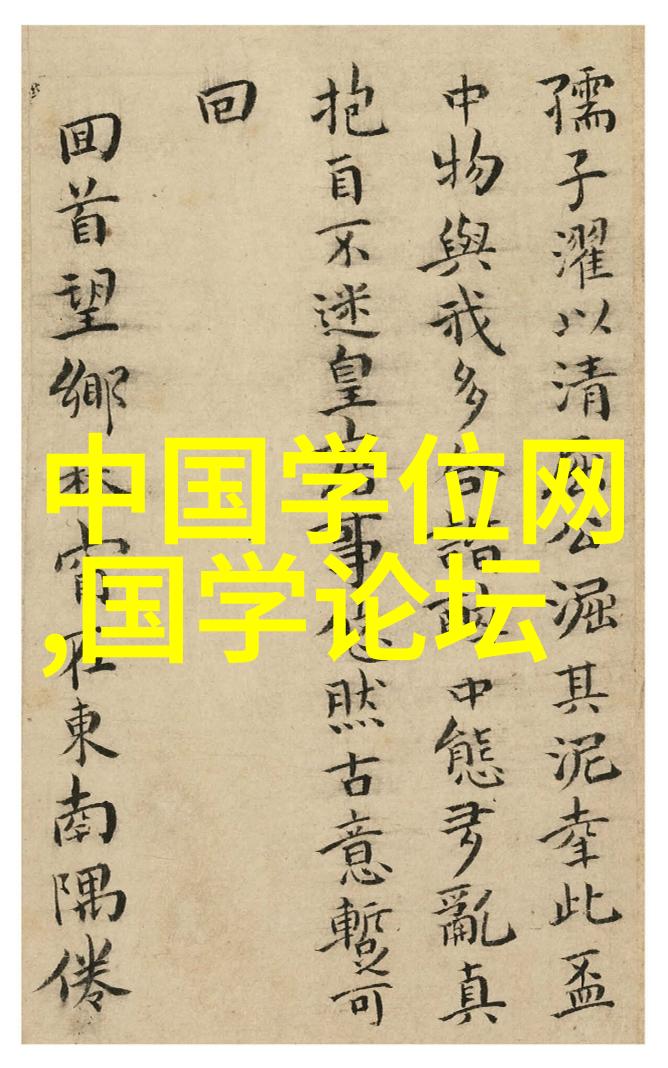 孺子濯以清公淈其泥幸此盃
中物與我多諧中態多亂真
抱自不迷皇事悠然古意暫可
回
囬首望鄉林甯在東南隅倦
中国学位网
,国学论坛